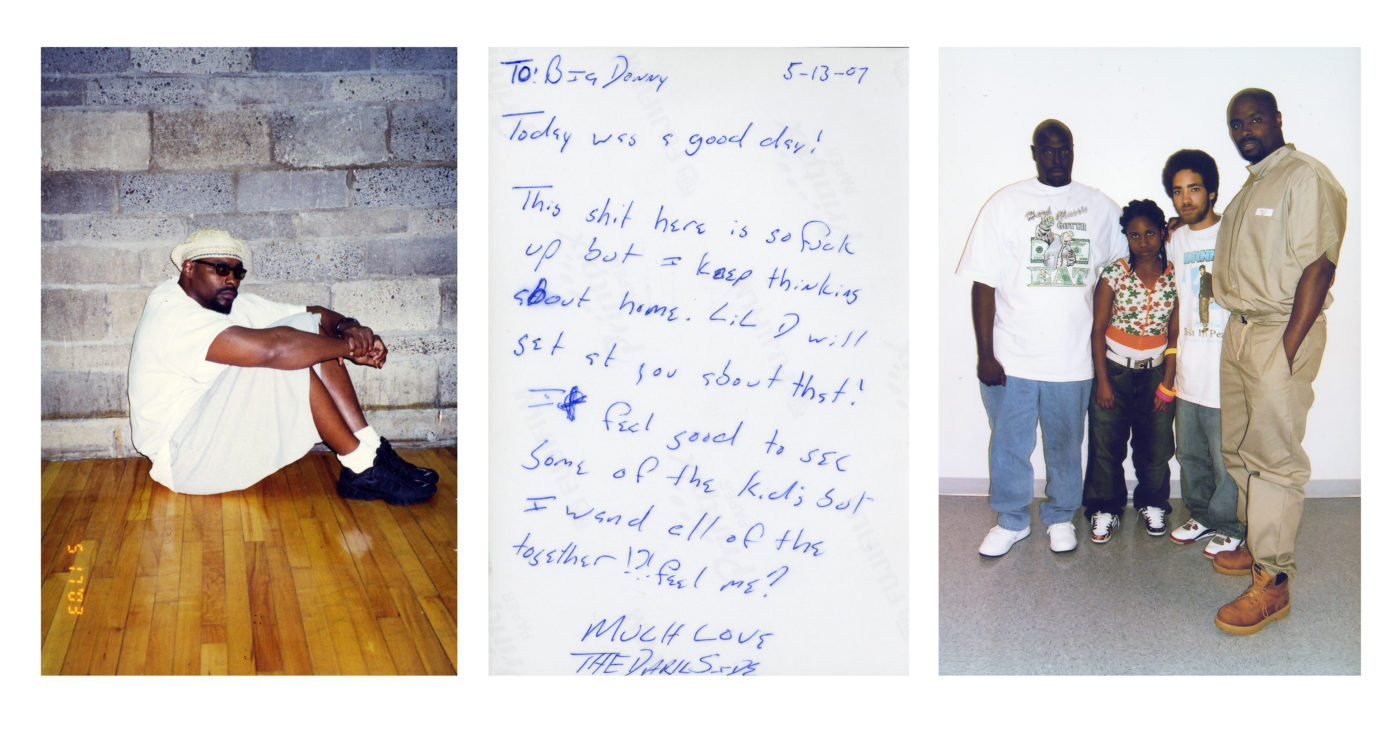 5 17 '03
TO: BIG DONNY 5-13-07
Today was a good day!
This shit here is so fuck
up but I keep thinking
about home. LiL D will
get at you about that!
I feel good to see
some of the kids but
I wand all of the
together !?! feel me?
MUCH LOVE
THE DARKSIDE
Hard Music
GOTTA
EAT
DANN
st In Pe